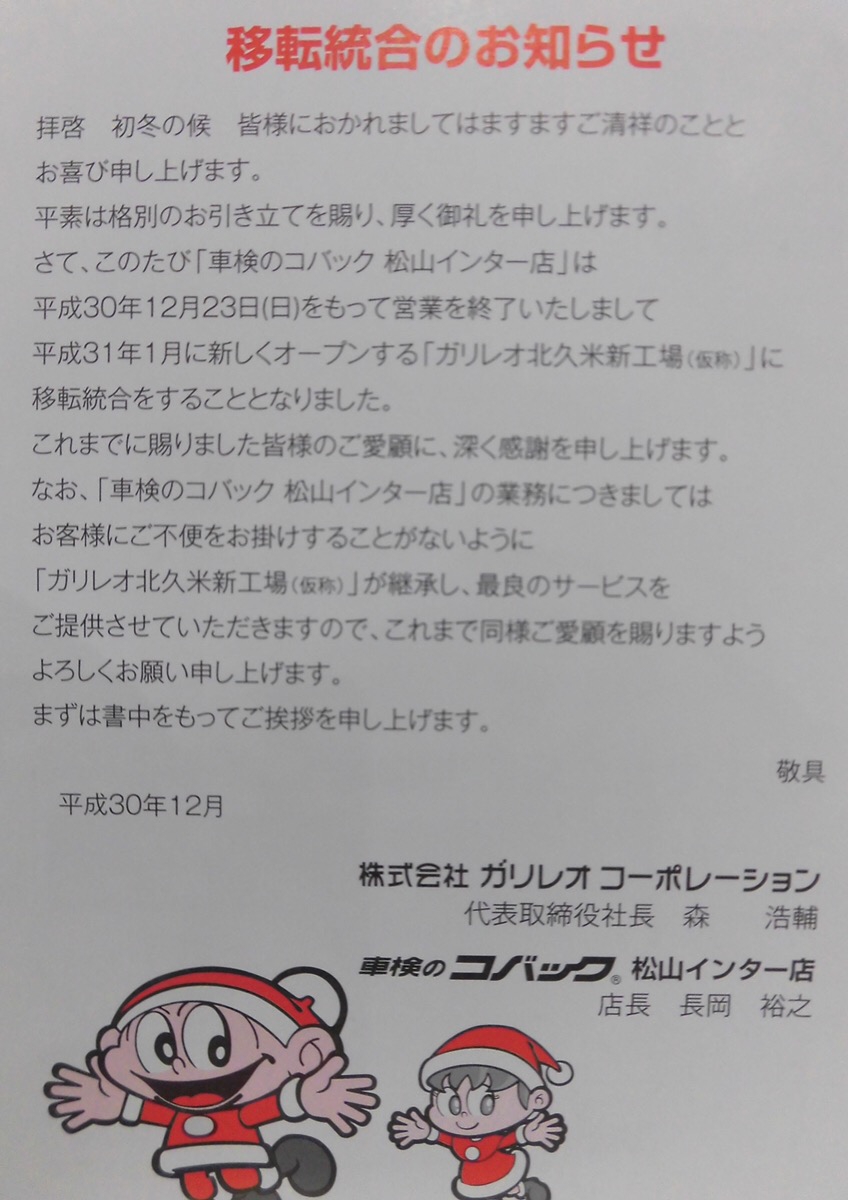 移転統合のお知らせ
拝啓　初冬の候　皆様におかれましてはますますご清祥のことと
お喜び申し上げます。
平素は格別のお引き立てを賜り、厚く御礼を申し上げます。
さて、このたび「車検のコバック 松山インター店」は
平成30年12月23日(日)をもって営業を終了いたしまして
平成31年1月に新しくオープンする「ガリレオ北久米新工場(仮称)」に
移転統合をすることとなりました。
これまでに賜りました皆様のご愛顧に、深く感謝を申し上げます。
なお、「車検のコバック 松山インター店」の業務につきましては
お客様にご不便をお掛けすることがないように
「ガリレオ北久米新工場(仮称)」が継承し、最良のサービスを
ご提供させていただきますので、これまで同様ご愛顧を賜りますよう
よろしくお願い申し上げます。
まずは書中をもってご挨拶を申し上げます。
敬具
平成30年12月
株式会社 ガリレオ コーポレーション
代表取締役社長　森　浩輔
車検の コバック® 松山インター店
店長　長岡　裕之